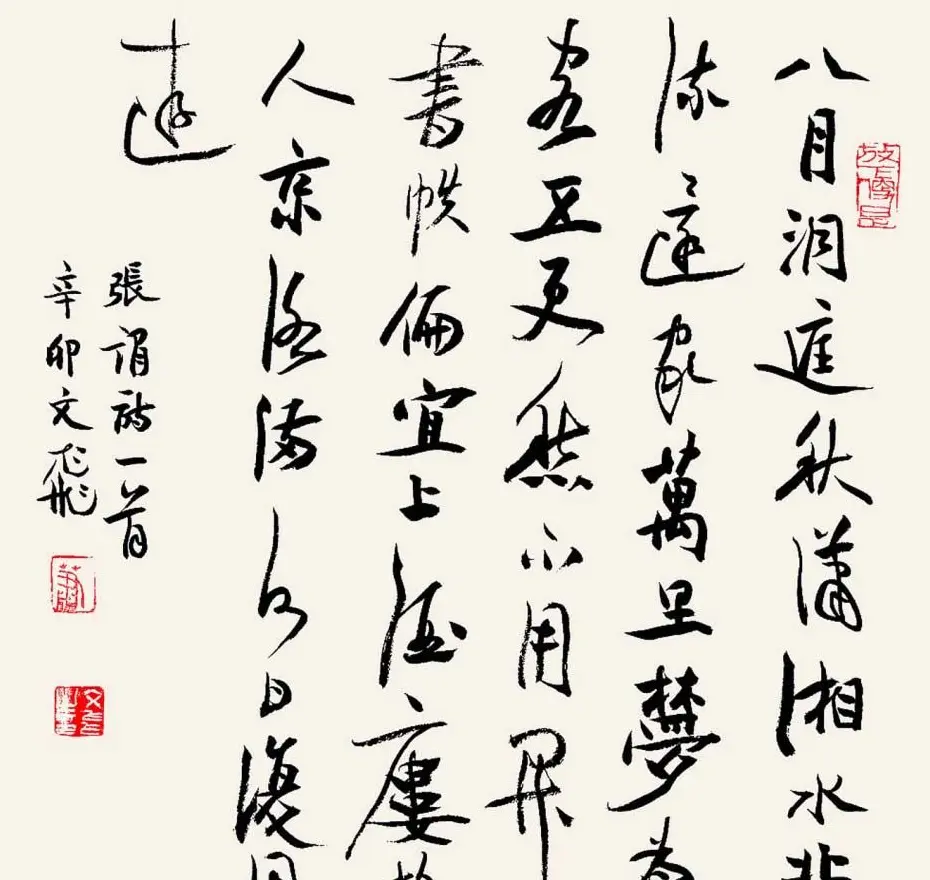 八月洞庭秋瀟湘水北
流還家萬里夢為
客五更愁不用開
書帙偏宜上酒廔
人京洛滿何日復同
遊
張謂詩一首
辛卯文飛